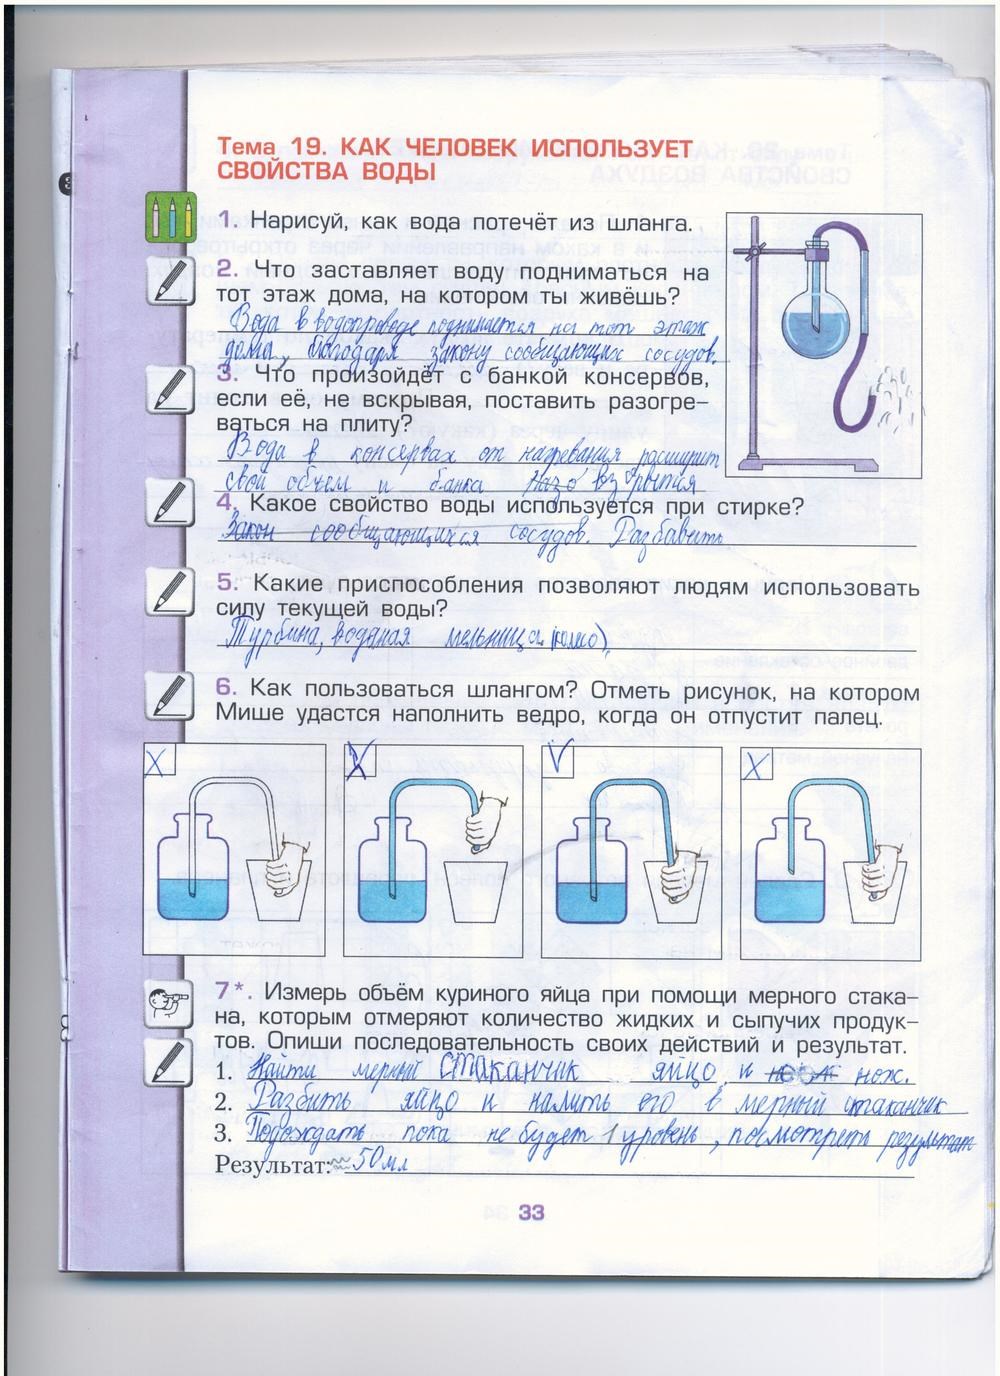 Тема 19. КАК ЧЕЛОВЕК ИСПОЛЬЗУЕТ
СВОЙСТВА ВОДЫ
1. Нарисуй, как вода потечёт из шланга.
2. Что заставляет воду подниматься на
тот этаж дома, на котором ты живёшь?
Вода в водопроводе поднимается на тот этаж
дома, благодаря закону сообщающих сосудов.
3. Что произойдёт с банкой консервов,
если её, не вскрывая, поставить разогре-
ваться на плиту?
Вода в консервах от нагревания расширит
свой объем и банка взорвится
4. Какое свойство воды используется при стирке?
Закон сообщающихся сосудов. Разбавить
5. Какие приспособления позволяют людям использовать
силу текущей воды?
Турбина, водяная мельница (колесо),
6. Как пользоваться шлангом? Отметь рисунок, на котором
Мише удастся наполнить ведро, когда он отпустит палец.
X X V X
7*. Измерь объём куриного яйца при помощи мерного стака-
на, которым отмеряют количество жидких и сыпучих продук-
тов. Опиши последовательность своих действий и результат.
1. Найти мерный стаканчик яйцо и нож.
2. Разбить яйцо и налить его в мерный стаканчик
3. Подождать пока не будет 1 уровень, посмотреть результат
Результат: ≈ 50 мл
33